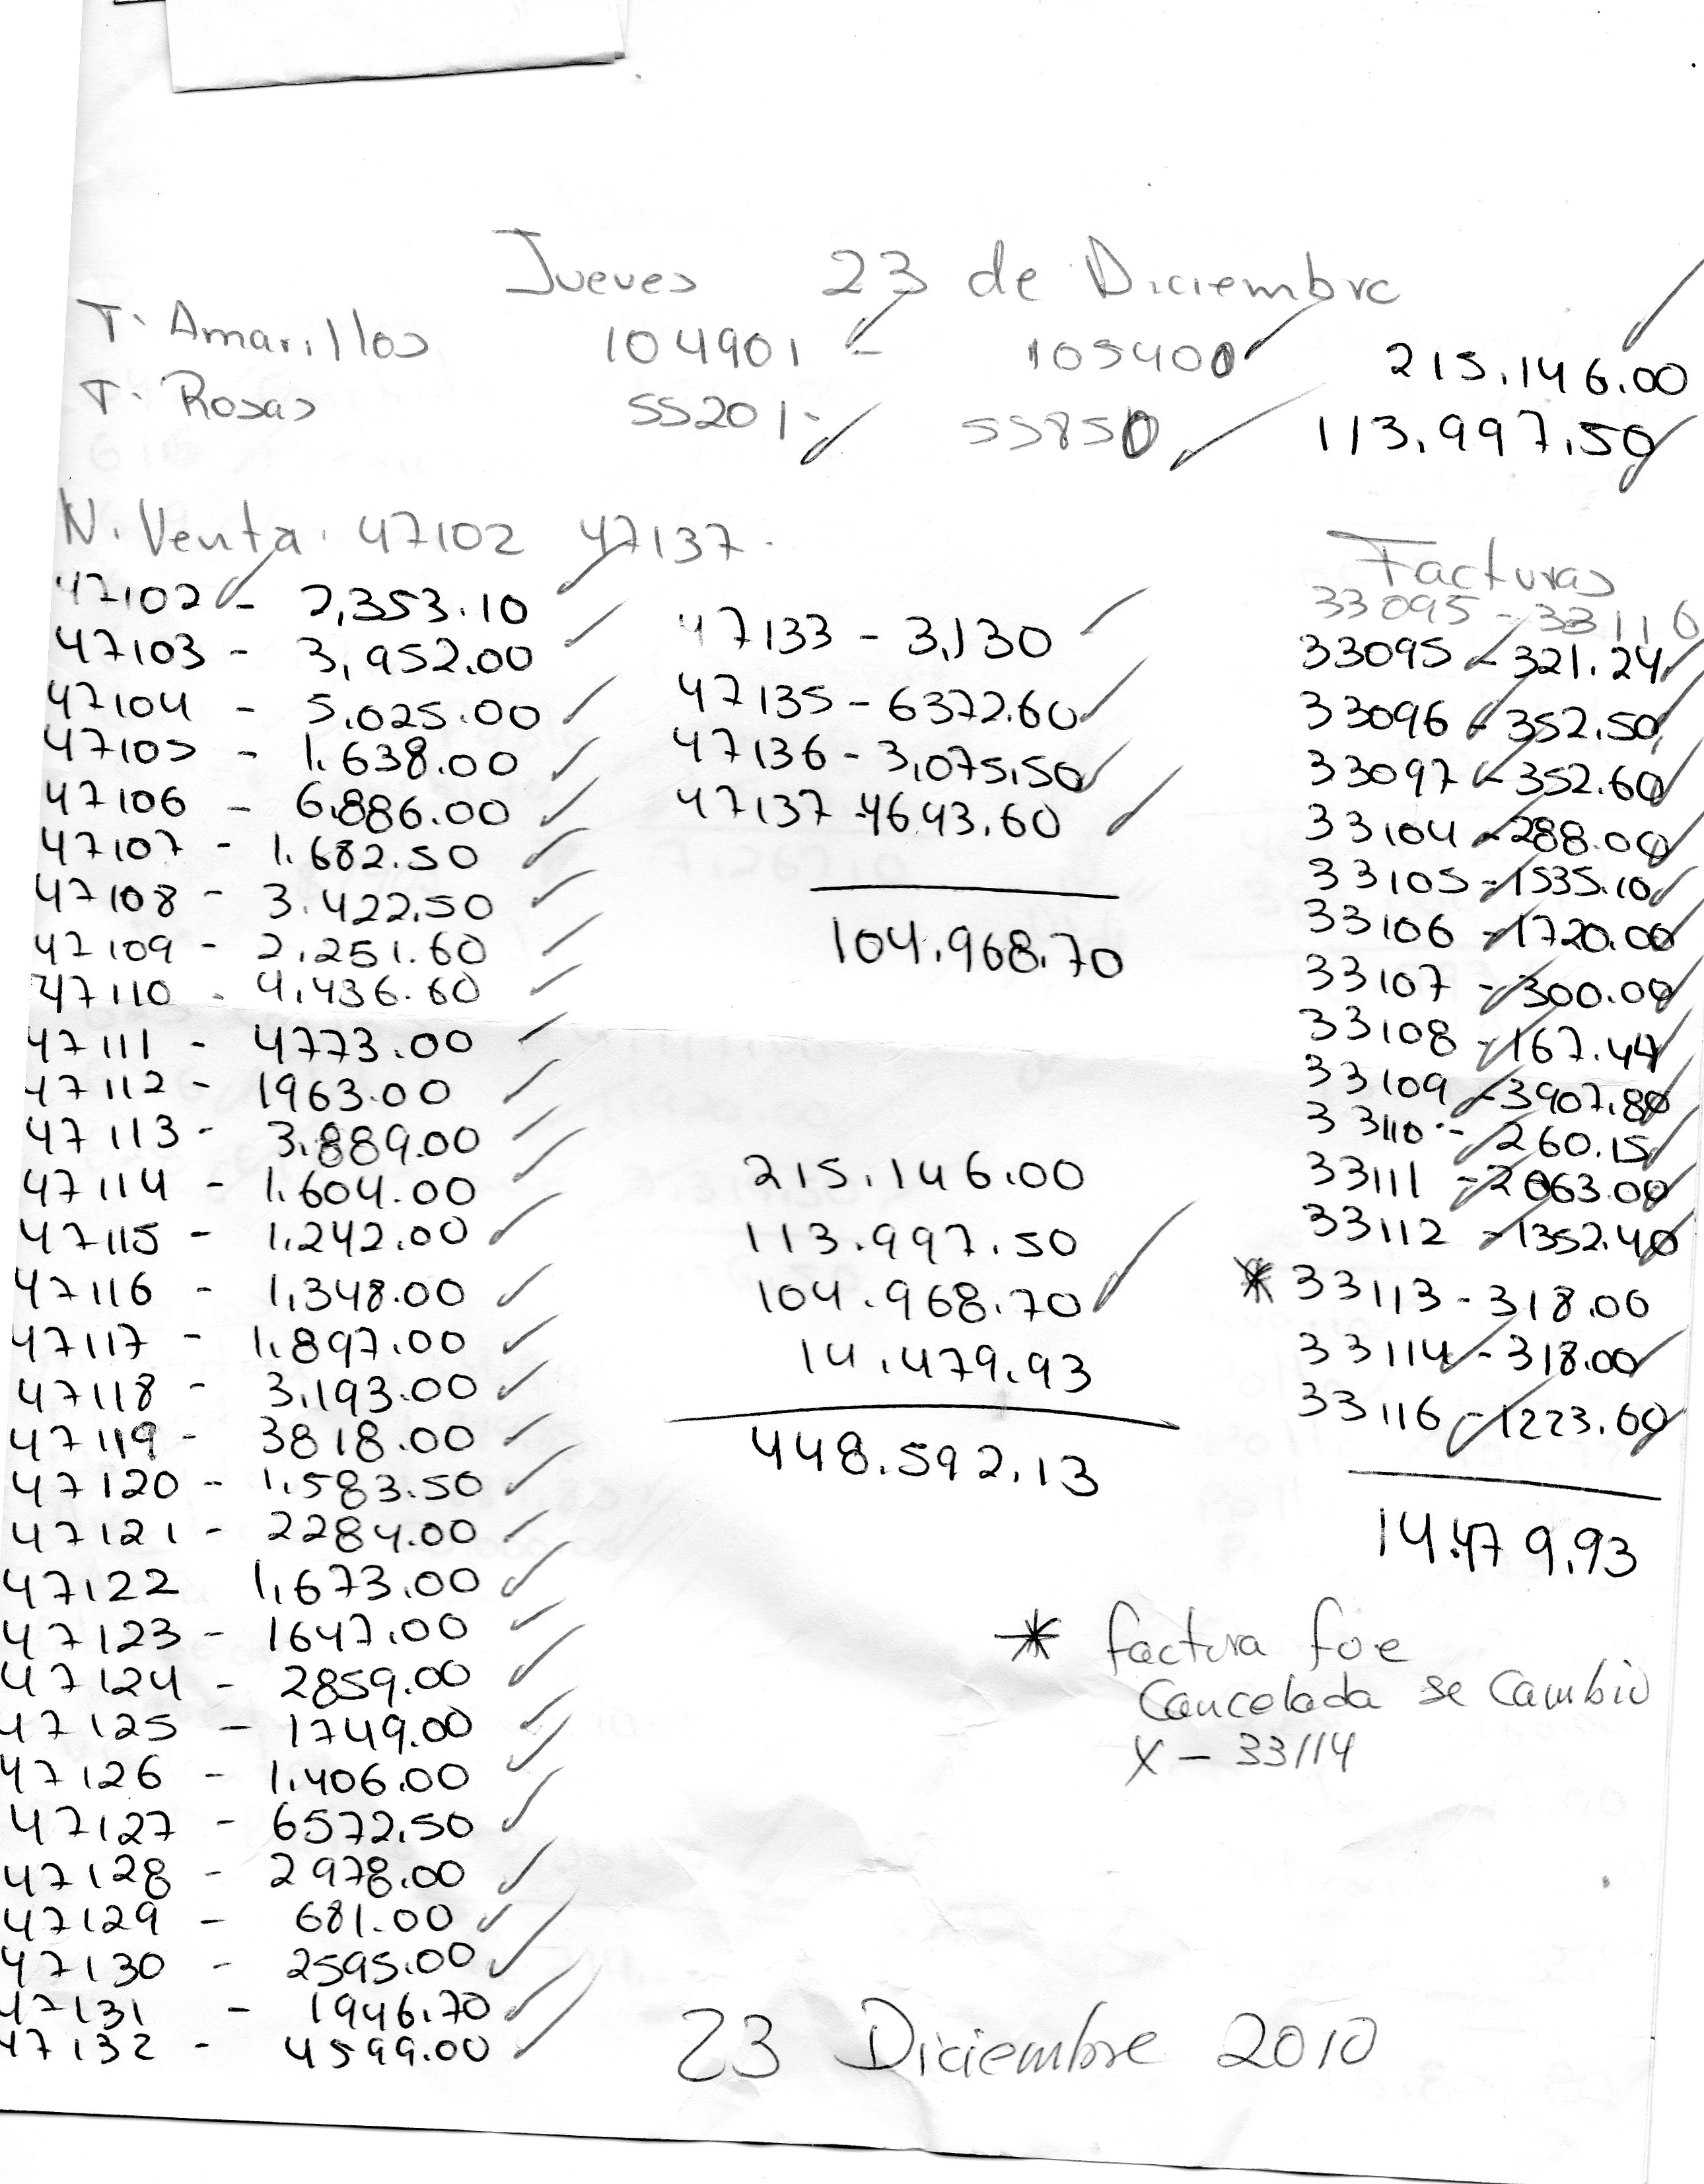 Jueves 23 de Diciembre
T. Amarillos 104901 - 105400 215.146.00
T. Rosas 55201 - 55850 113.997.50
N. Venta. 47102 47137.
47102 - 2,353.10
47103 - 3,952.00
47104 - 5.025.00
47105 - 1.638.00
47106 - 6.886.00
47107 - 1.682.50
47108 - 3.422.50
47109 - 2.251.60
47110 - 4,436.60
47111 - 4773.00
47112 - 1963.00
47113 - 3.889.00
47114 - 1.604.00
47115 - 1.242.00
47116 - 1,348.00
47117 - 1.897.00
47118 - 3.193.00
47119 - 3818.00
47120 - 1.583.50
47121 - 2284.00
47122 1,673.00
47123 - 1647.00
47124 - 2859.00
47125 - 1749.00
47126 - 1.406.00
47127 - 6572.50
47128 - 2978.00
47129 - 681.00
47130 - 2595.00
47131 - 1946.70
47132 - 4599.00
47133 - 3,130
47135 - 6372.60
47136 - 3,075.50
47137 - 4643.60
104.968.70
215.146.00
113.997.50
104.968.70
14.479.93
448.592.13
Facturas
33095 - 33116
33095 - 321.24
33096 - 352.50
33097 - 352.60
33104 - 288.00
33105 - 1535.10
33106 - 1720.00
33107 - 300.00
33108 - 167.44
33109 - 3907.80
33110 - 260.15
33111 - 2063.00
33112 - 1352.40
* 33113 - 318.00
33114 - 318.00
33116 - 1223.60
14.479.93
* factura fue
Cancelada se Cambio
X - 33114
23 Diciembre 2010